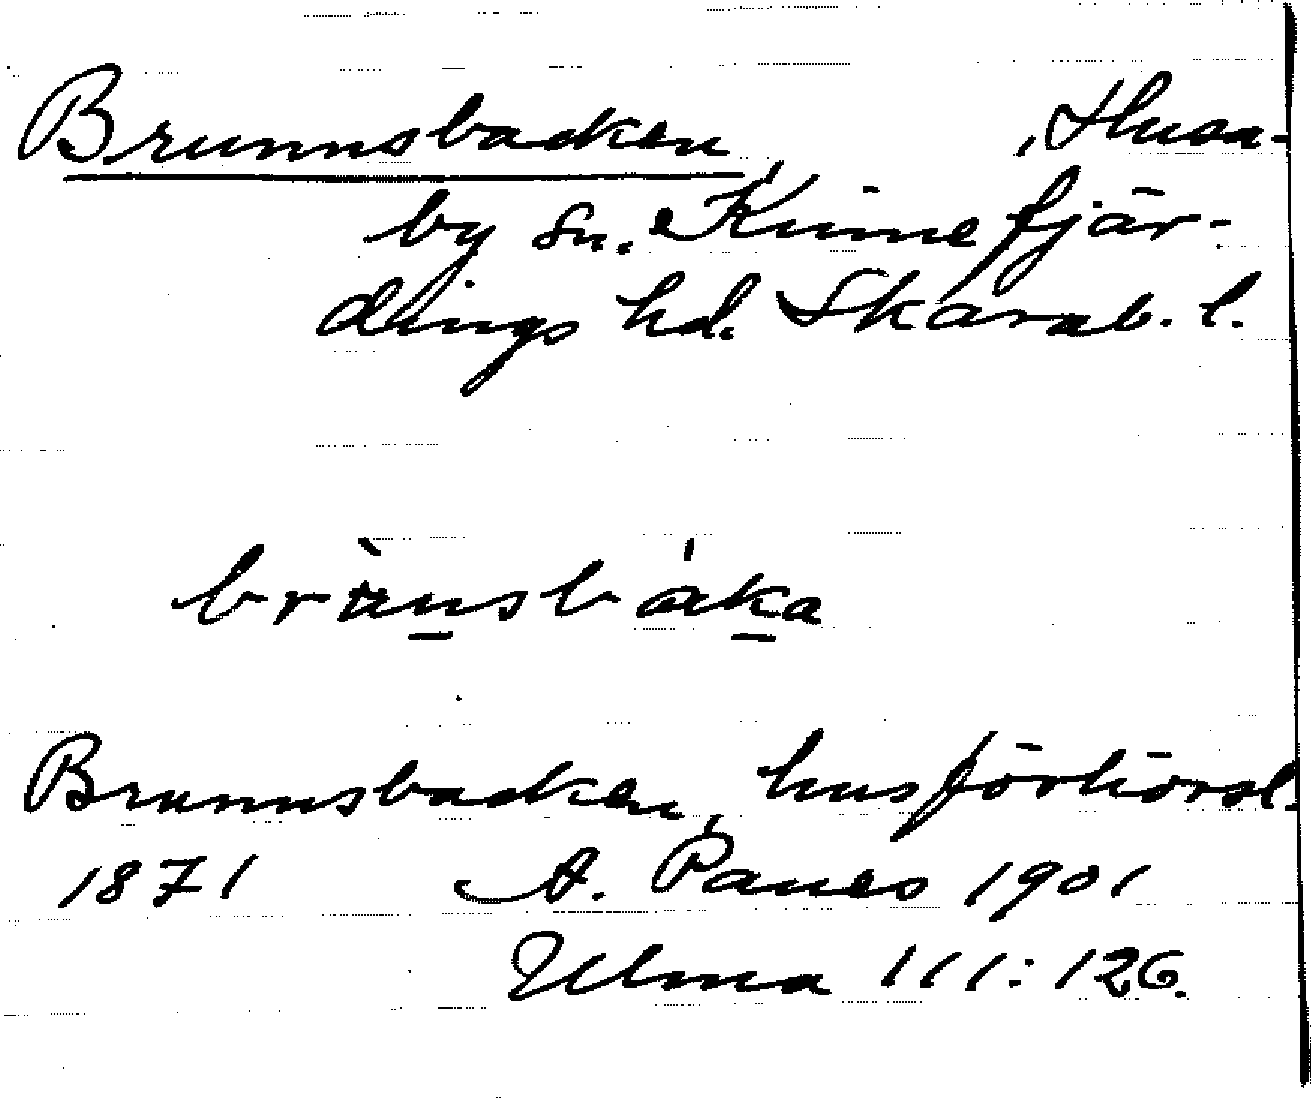 Brunnsbacken, Husa-
by sn. Kinnefjär-
dings hd. Skarab. l.
brùnsbáka
Brunnsbacken, husförhörsl.
1871 A. Paues 1901
Ulma 111:126.